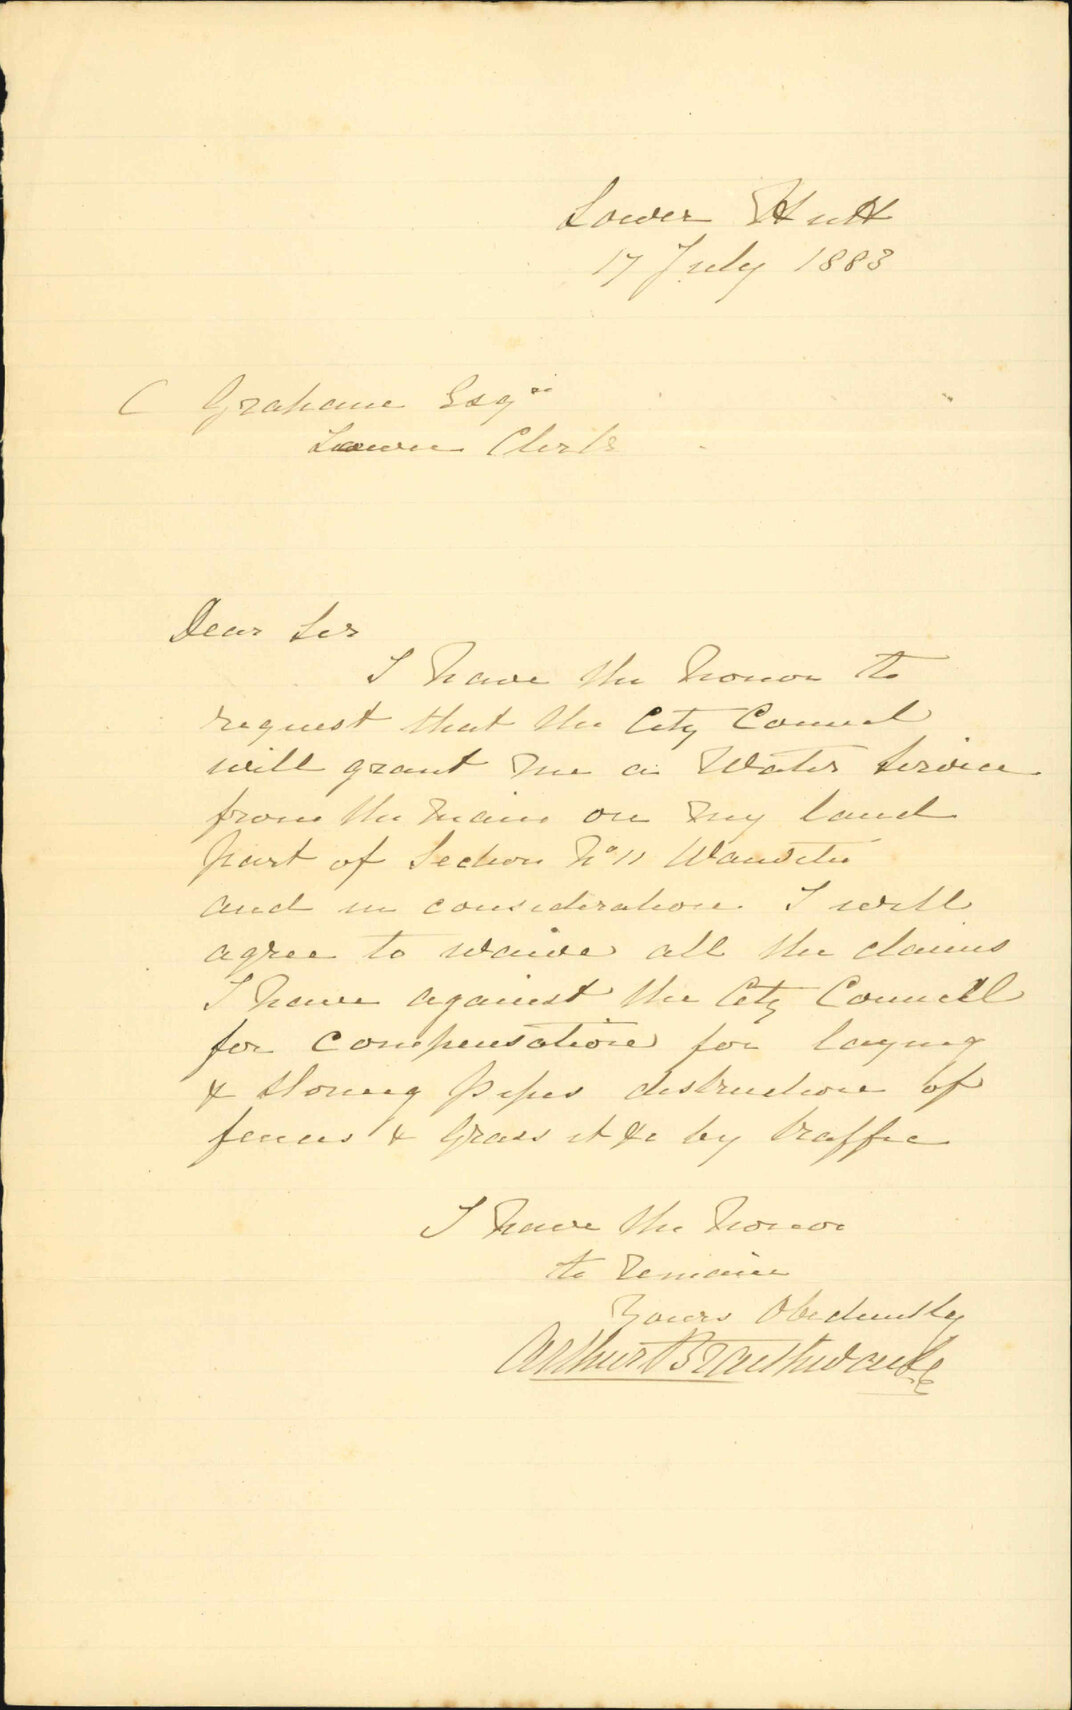 Lower Hutt
17 July 1883
C Graham Esqre
Town Clerk
Dear Sir
I have the honor to
request that the City Council
will grant me a Water Service
from the main on my land
part of Section No 11
and in consideration I will
agree to waive all the claims
I have against the City Council
for compensation for laying
& pipes distruction of
fences & Grass &c by traffic
I have the honor
to remain
Yours Obediently
Arthur Braithwaite